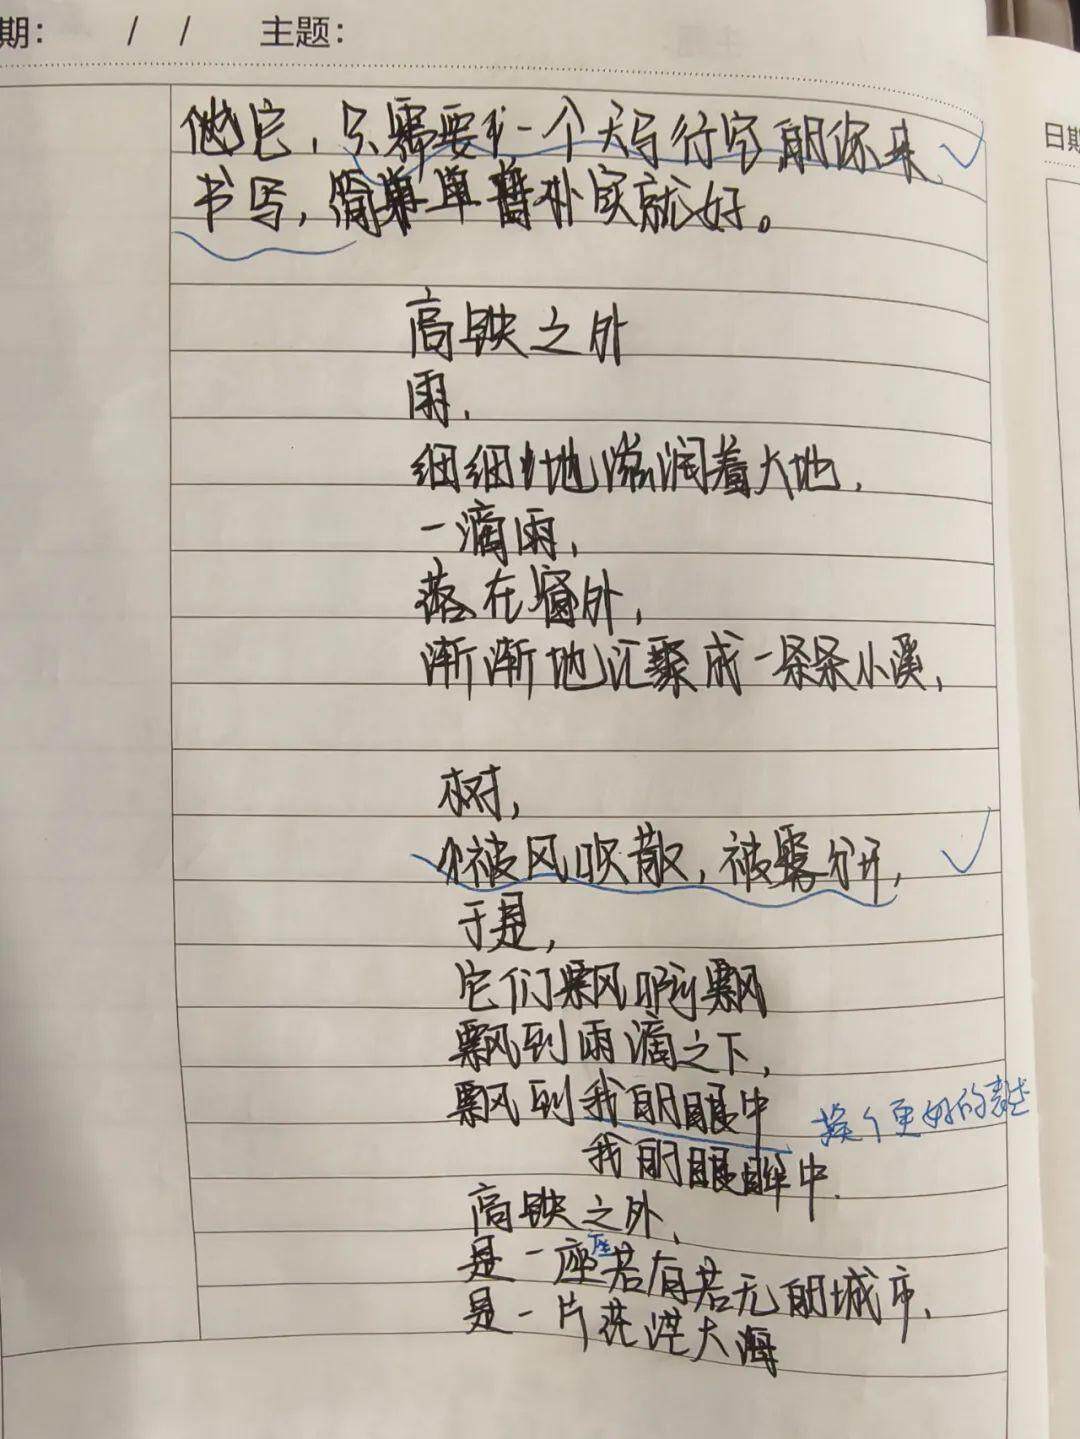 期： / / 主题：
他它，只需要一个大写行写的你来
书写，简单单普朴实就好。
高铁之外
雨，
细细地滋润着大地，
一滴雨，
落在窗外，
渐渐地汇聚成一条条小溪，
树，
被风吹散，被雾分开，
于是，
它们飘啊飘
飘到雨滴之下，
飘到我的眼中
换个更好的表述
我的眼眸中．
高铁之外，
是一座座若有若无的城市，
是一片茫茫大海
日期